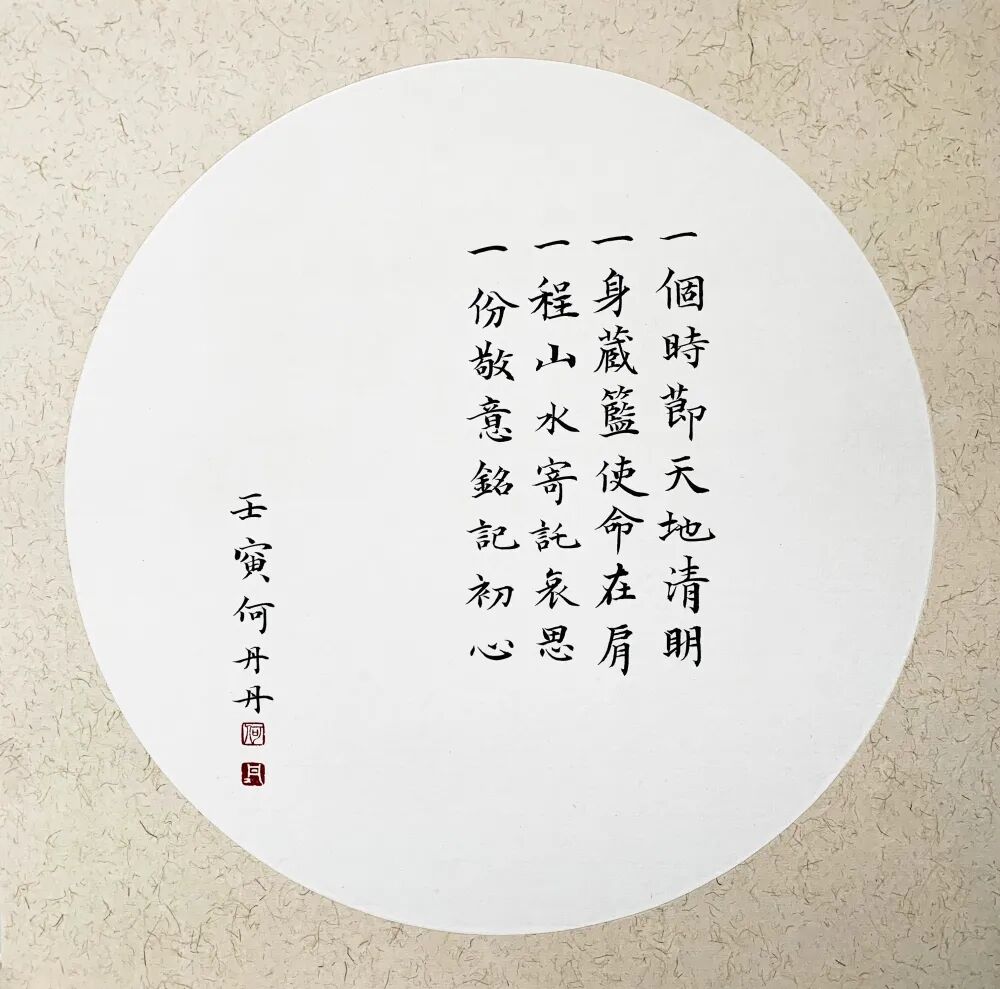 一個時莭天地清明
一身蔵籃使命在肩
一程山水寄託哀思
一份敬意銘記初心
壬寅何丹丹
何
丹